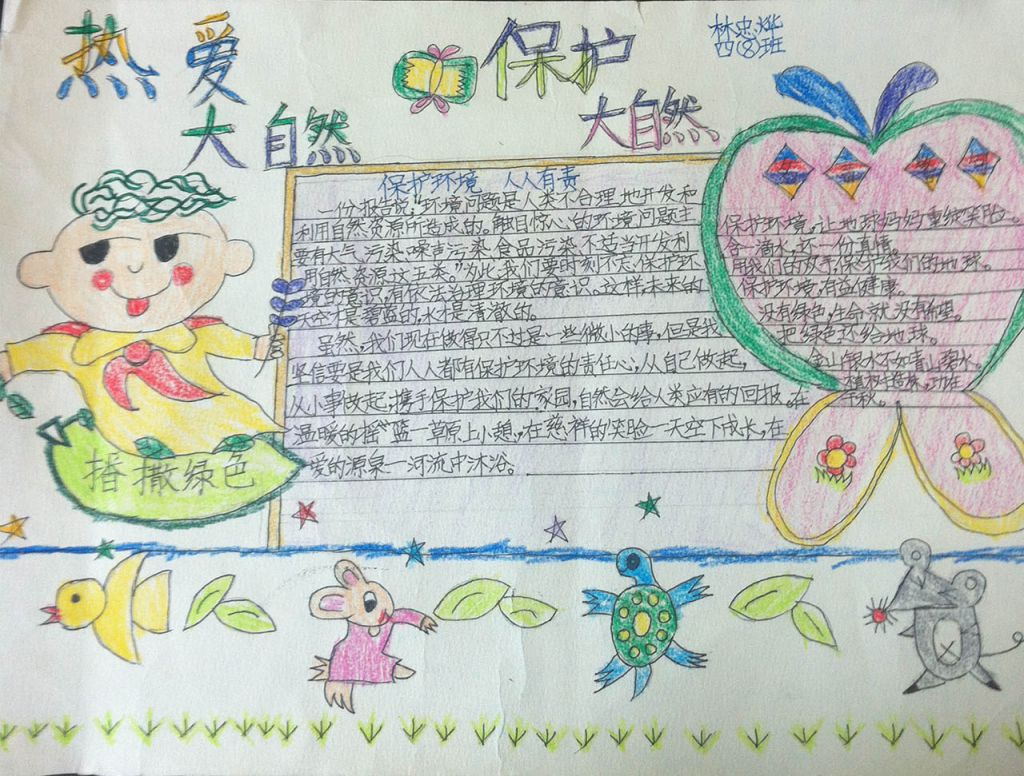 热爱
大自然
保护
大自然
林忠烨
四(8)班
保护环境 人人有责
一份报告说:"环境问题是人类不合理地开发和
利用自然资源所造成的。触目惊心的环境问题主
要有大气污染、噪声污染、食品污染、不适当开发利
用自然资源这五类。"为此,我们要时刻不忘,保护环
境的意识,有依法治理环境的意识。这样,未来的
天空才是碧蓝的,水才是清澈的。
虽然,我们现在做得只不过是一些微小的事,但是我
坚信要是我们人人都有保护环境的责任心,从自己做起,
从小事做起,携手保护我们的家园,自然会给人类应有的回报。在
温暖的摇"篮—草原上小憩,在慈祥的笑脸—天空下成长,在
爱的源泉—河流中沐浴。
保护环境,让地球妈妈重绽笑脸。
含一滴水,环一份真情。
用我们的双手,保护我们的地球。
保护环境,有益健康。
没有绿色,生命就没有希望。
把绿色还给地球。
金山银水不如青山碧水。
植树造林,功在
千秋。
播撒绿色